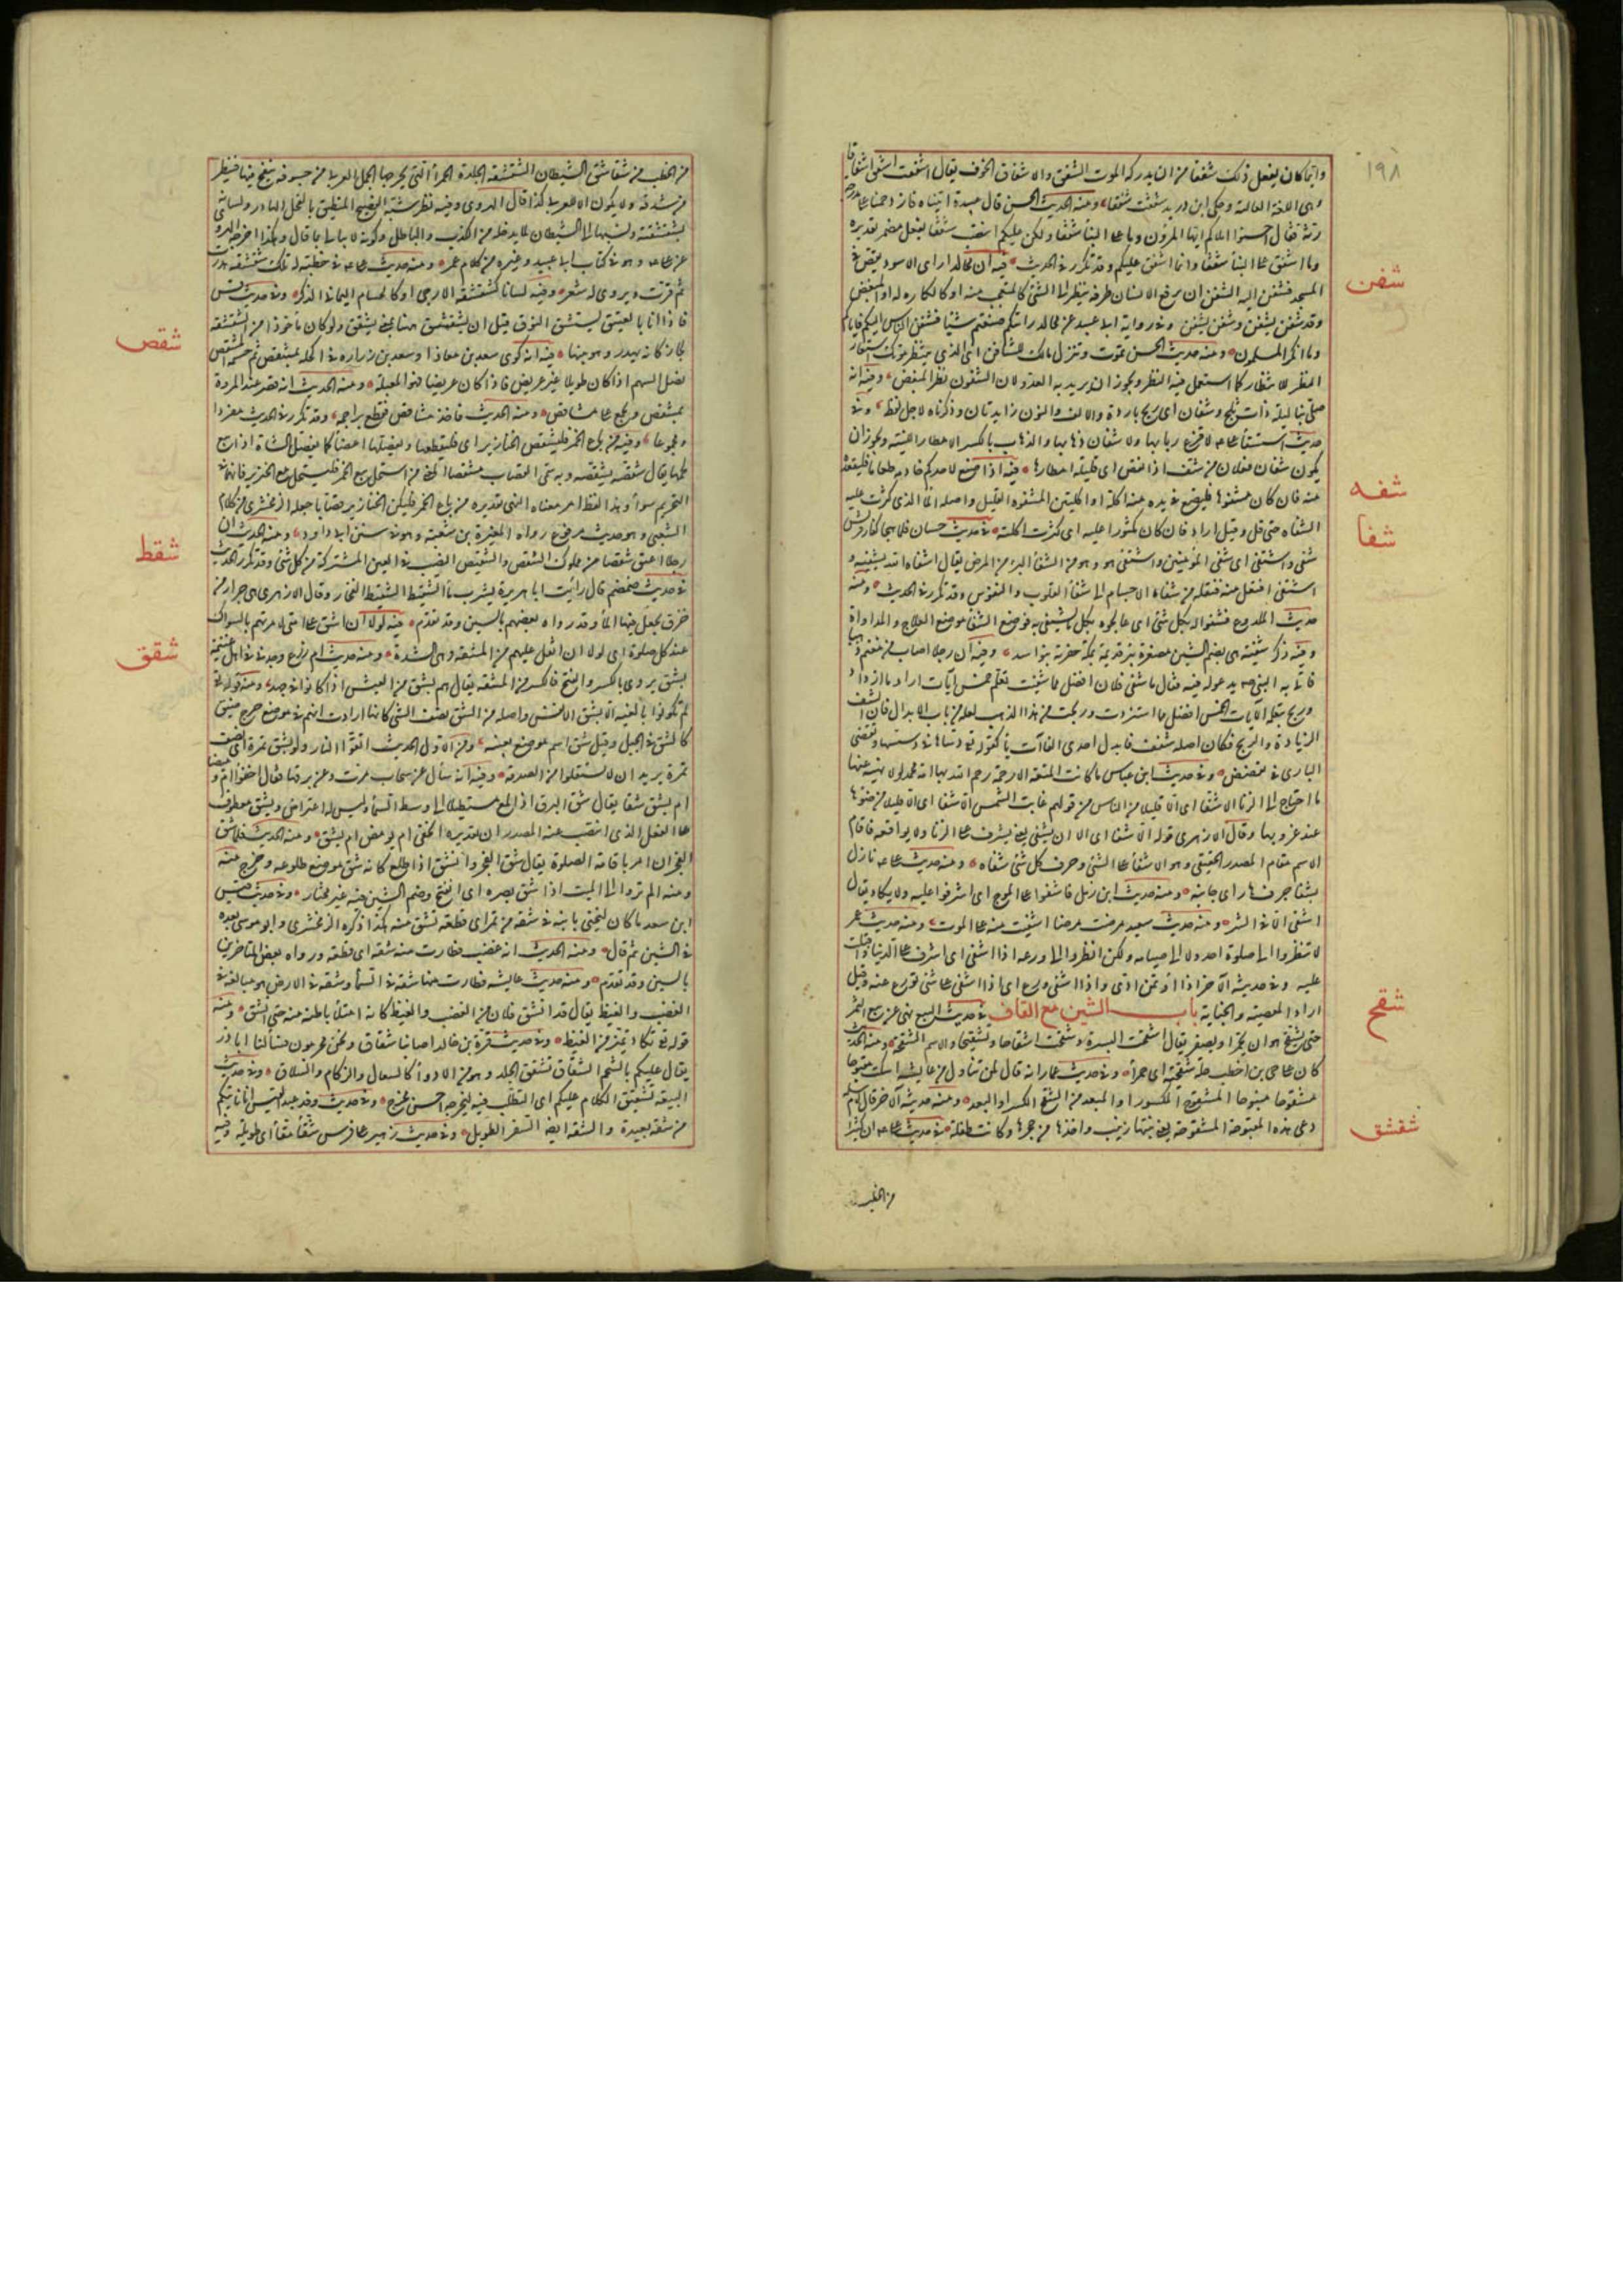 ١٩٨
وانما كان يفعل ذلك شفقا من ان يدركه الموت الشفق والاشفاق الخوف يقال اشفقت اشفق اشفاقا
وهى اللغة العالية وحكى ابن دريد شفقت شفقا ومنه الحديث الحسن قال عبيدة اتيناه فازدحمنا على مدرجة
رثة فقال احسنوا املاكم ايها المرؤن وما على البنا شفقا ولكن عليكم انتصب شفقا بفعل مضمر تقديره
وما اشفق على البنا شفقا وانما اشفق عليكم وقد تكرر فى الحديث فيه ان مجالدا راى الاسود يقص فى
شفن
المسجد فشفن اليه الشفن ان يرفع الانسان طرفه ينظر الى الشئ كالمتعجب منه او كالكاره له او المبغض
وقد شفن يشفن وشفن يشفن وفى رواية ابى عبيد عن مجالد رايتكم صنعتم شيئا فشفن الناس اليكم فاياكم
وما انكر المسلمون ومنه حديث الحسن تموت وتترك مالك للشافن اى الذى ينتظر موتك استعار
النظر للانتظار كما استعمل فيه النظر ويجوز ان يريد به العدو لان الشفون نظر المبغض وفيه انه
صلى بنا ليلة ذات ثلج وشفان اى ريح باردة والالف والنون زايدتان وذكرناه لاجل لفظه وفى
حديث استسقاء على لا قزع ربابها ولا شفان ذهابها والذهاب بالكسر الامطار اللينة ويجوز ان
يكون شفان فعلان من شف اذا نقص اى قليلة امطارها فيه اذا صنع لاحدكم خادمه طعاما فليقعده
شفه
معه فان كان مشفوها فليضع فى يده منه اكلة او اكلتين المشفوه القليل واصله الماء الذى كثرت عليه
الشفاه حتى قل وقيل اراد فان كان مكثورا عليه اى كثرت اكلته فى حديث حسان فلما هجا كفار قريش
شفا
شفى واشتفى اى شفى المؤمنين واشتفى هو وهو من الشفا البرء من المرض يقال شفاه الله يشفيه و
اشتفى افتعل منه فنقله من شفاء الاجسام الى شفاء القلوب والنفوس وقد تكرر فى الحديث ومنه
حديث الملدوغ فشفوا له بكل شئ اى عالجوه بكل ما يشتفى به فوضع الشفا موضع العلاج والمداواة
وفيه ذكر شفية هى بضم الشين مصغرة بئر قديمة بمكة حفرتها بنو اسد وفيه ان رجلا اصاب من مغنم ذهبا
فاتى به النبى يدعو له فيه فقال ما شفى فلان افضل مما شفيت تعلم خمس آيات اراد ما ازداد
وربح بتعلمه الآيات الخمس افضل مما استزدت وربحت من هذا الذهب لعله من باب الابدال فان الشف
الزيادة والربح فكان اصله شفف فابدل احدى الفاآت ياء كقوله دساها فى دسسها وتقضى
البازى فى تقضض وفى حديث ابن عباس ما كانت المتعة الا رحمة رحم الله بها امة محمد لولا نهيه عنها
ما احتاج الى الزنا الا شفا اى الا قليل من الناس من قولهم غابت الشمس الا شفا اى الا قليلا من ضوئها
عند غروبها وقال الازهرى قوله الا شفا اى الا ان يشفى يعنى يشرف على الزنا ولا يواقعه فاقام
الاسم مقام المصدر الحقيقى وهو الاشفا على الشئ وحرف كل شئ شفاه ومنه حديث على نازل
بشفا جرف هار اى جانبه ومنه حديث ابن زمل فاشفوا على المرج اى اشرفوا عليه ولا يكاد يقال
اشفى الا فى الشر ومنه حديث سعيد مرضت مرضا اشفيت منه على الموت ومنه حديث عمر
لا تنظروا الى صلوة احد ولا الى صيامه ولكن انظروا الى ورعه اذا اشفى اى اشرف على الدنيا واقبلت
عليه وفى حديثه الآخر اذا اؤتمن ادى واذا اشفى ورع اى اذا اشفى على شئ تورع عنه وقيل
اراد المعصية والخيانة باب الشين مع القاف فى حديث البيع نهى عن بيع الثمر
شقح
حتى يشقح هو ان يحمر او يصفر يقال اشقحت البسرة وشقحت اشقاحا وتشقيحا والاسم الشقحة ومنه الحديث
كان على حيى بن اخطب حلة شقحية اى حمراء وفى حديث عمار انه قال لمن تناول من عايشة اسكت مقبوحا
مشقوحا منبوحا المشقوح المكسور او المبعد من الشقح الكسر او البعد ومنه حديثه الآخر قال لام سلمة
دعى هذه المقبوحة المشقوحة يعنى بنتها زينب واخذها من حجرها وكانت طفلة فى حديث على ان كثيرا
شقشق
من الخطب
من الخطب من شقاشق الشيطان الشقشقة الجلدة الحمراء التى يخرجها الجمل العربى من جوفه ينفخ فيها فتظهر
من شدقه ولا يكون الا للعربى كذا قال الهروى وفيه نظر شبه الفصيح المنطيق بالفحل الهادر ولسانه
بشقشقته ونسبها الى الشيطان لما يدخله من الكذب والباطل وكونه لا يبالى بما قال وهكذا اخرجه الهروى
عن على وهو فى كتاب ابى عبيد وغيره من كلام عمر ومنه حديث على فى خطبة له تلك شقشقة هدرت
ثم قرت ويروى له شعر وفيه لسانا كشقشقة الارحبى او كالحسام اليمانى الذكر وفى حديث قس
فاذا انا بالفنيق يشقشق النوق قيل ان يشقشق هنا بمعنى يشقق ولو كان ماخوذا من الشقشقة
شقص
لجاز كانه يهدر وهو بينها فيه انه كوى سعد بن معاذ او سعد بن زرارة فى اكحله بمشقص ثم حسمه المشقص
نصل السهم اذا كان طويلا غير عريض فاذا كان عريضا فهو المعبلة ومنه الحديث انه قصر عند المروة
بمشقص ويجمع على مشاقص ومنه الحديث فاخذ مشاقص فقطع براجمه وقد تكرر فى الحديث مفردا
ومجموعا وفيه من باع الخمر فليشقص الخنازير اى فليقطعها ويفصلها اعضاء كما يفصل الشاة اذا بيع
لحمها يقال شقصه يشقصه وبه سمى القصاب مشقصا المعنى من استحل بيع الخمر فليستحل بيع الخنزير فانهما فى
التحريم سواء وهذا لفظ امر معناه النهى تقديره من باع الخمر فليكن للخنازير قصابا جعله الزمخشرى من كلام
الشعبى وهو حديث مرفوع رواه المغيرة بن شعبة وهو فى سنن ابى داود ومنه الحديث ان
رجلا اعتق شقصا من مملوك الشقص والشقيص النصيب فى العين المشتركة من كل شئ وقد تكرر فى الحديث
شقط
فى حديث ضمضم قال رأيت ابا هريرة يشرب من ماء الشقيط الشقيط الفخار وقال الازهرى هى جرار من
خزف يجعل فيها الماء وقد رواه بعضهم بالسين وقد تقدم فيه لولا ان اشق على امتى لامرتهم بالسواك
شقق
عند كل صلوة اى لولا ان اثقل عليهم من المشقة وهى الشدة ومنه حديث ام زرع وجدنى فى اهل غنيمة
بشق يروى بالكسر والفتح فالكسر من المشقة يقال هم بشق من العيش اذا كانوا فى جهد ومنه قوله
لم تكونوا بالغيه الا بشق الانفس واصله من الشق نصف الشئ كانها ارادت انهم فى موضع حرج ضيق
كالشق فى الجبل وقيل شق اسم موضع بعينه ومن الاول الحديث اتقوا النار ولو بشق تمرة اى نصف
تمرة يريد ان لا تستقلوا من الصدقة وفيه انه سأل عن سحاب مرت وعن برقها فقال اخفوا ام وميضا
ام يشق شقا يقال شق البرق اذا لمع مستطيلا الى وسط السماء وليس له اعتراض ويشق معطوف
على الفعل الذى انتصب عنه المصدران تقديره ايخفى ام يومض ام يشق ومنه الحديث فلما شق
الفجران امرنا باقامة الصلوة يقال شق الفجر وانشق اذا طلع كانه شق موضع طلوعه وخرج منه
ومنه الم تروا الى الميت اذا شق بصره اى انفتح وضم الشين فيه غير مختار وفى حديث قيس
ابن سعد ما كان ليخنى بابنه فى شقة من تمر اى قطعة تشق منه هكذا ذكره الزمخشرى وابو موسى بعده
فى الشين ثم قال ومنه الحديث انه غضب فطارت منه شقة اى قطعة ورواه بعض المتاخرين
بالسين وقد تقدم ومنه حديث عايشة فطارت منها شقة فى السماء وشقة فى الارض هو مبالغة فى
الغضب والغيظ يقال قد انشق فلان من الغضب والغيظ كانه امتلأ باطنه منه حتى انشق ومنه
قوله تكاد تميز من الغيظ وفى حديث قرة بن خالد اصابنا شقاق ونحن محرمون فسألنا ابا ذر
فقال عليكم بالشحم الشقاق تشقق الجلد وهو من الادواء كالسعال والزكام والسلاق وفى حديث
البيعة تشقيق الكلام عليكم اى التطلب فيه ليخرجه احسن مخرج وفى حديث وفد عبد القيس انا ناتيكم
من شقة بعيدة والشقة ايضا السفر الطويل وفى حديث زهير على فرس شقاء مقاء اى طويلة وفيه